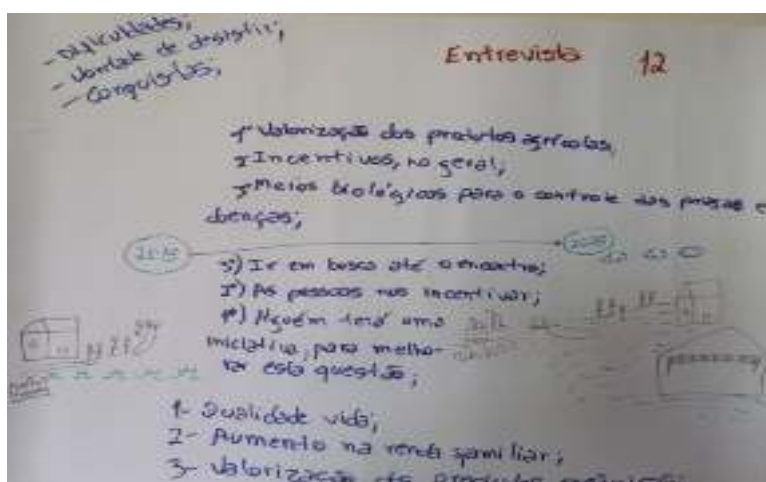 - Dificuldades;
- Vontade de desistir;
- Conquistas;
Entrevista 12
1- Valorização dos produtos agrícolas,
2- Incentivos, no geral;
3- Meios biológicos para o controle das pragas e
doenças;
3º) Ir em busca até o encontro;
2º) As pessoas nos incentivar;
1º) Alguém terá uma
iniciativa, para melho-
rar esta questão;
1- Qualidade vida;
2- Aumento na renda familiar;
3- Valorização do produto